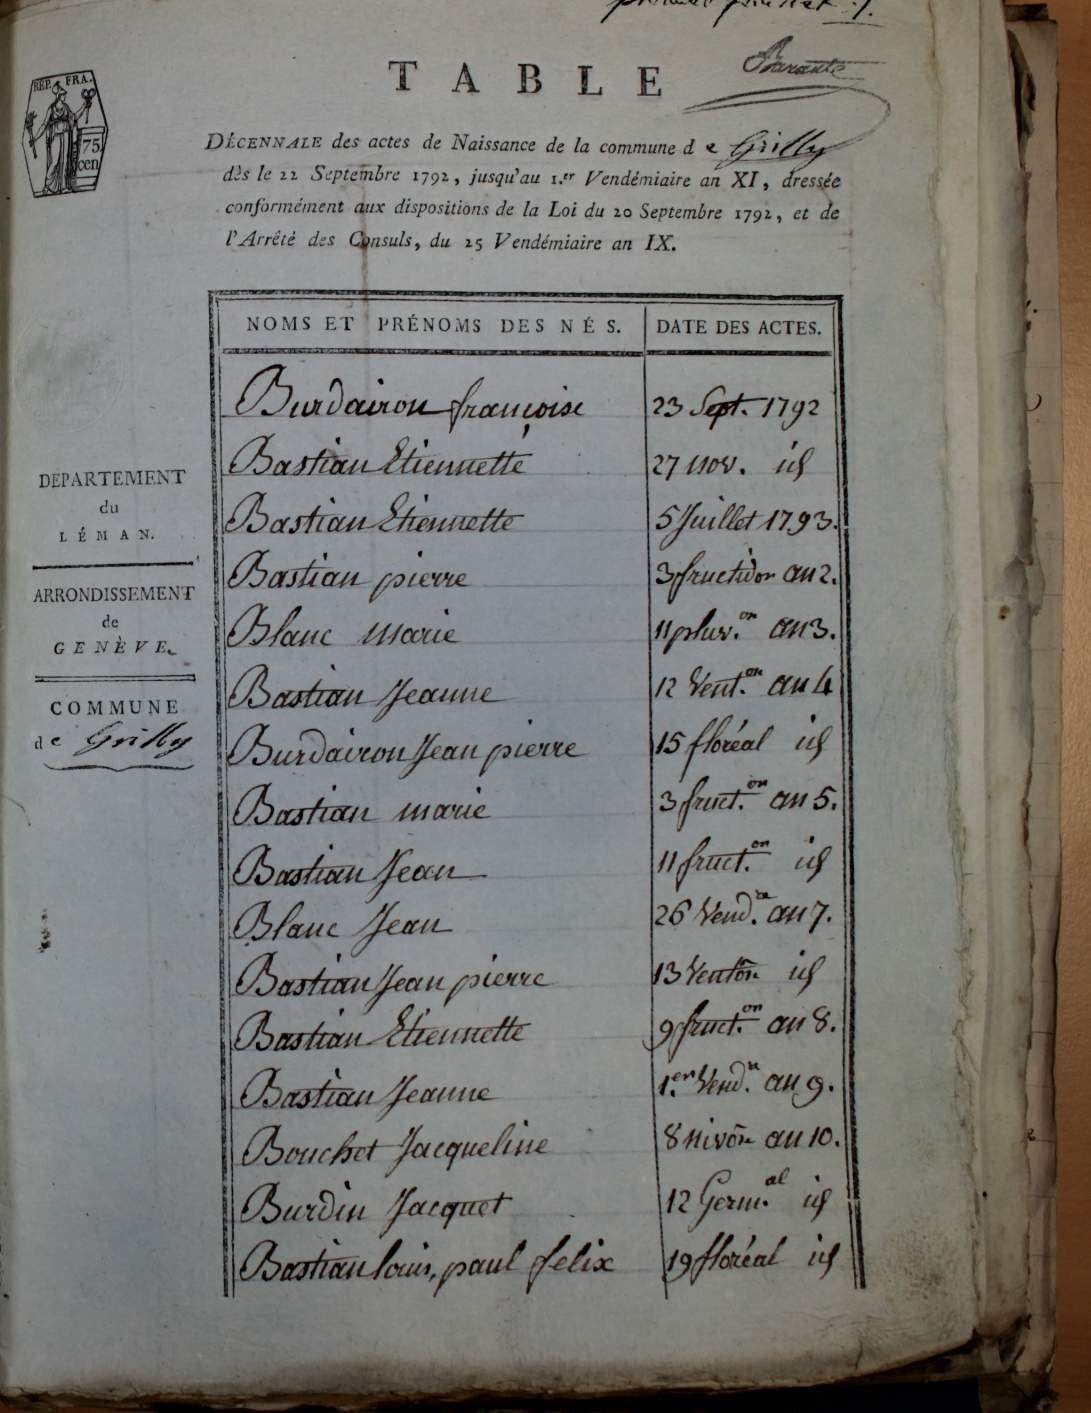 premier feuillet ./.
TABLE
Barante
REP. FRA.
75
cen
DÉCENNALE des actes de Naissance de la commune de Grilly
dès le 22 Septembre 1792, jusqu'au 1.er Vendémiaire an XI, dressée
conformément aux dispositions de la Loi du 20 Septembre 1792, et de
l'Arrêté des Consuls, du 25 Vendémiaire an IX.
DEPARTEMENT
du
LÉMAN.
ARRONDISSEMENT
de
GENÈVE.
COMMUNE
de Grilly
NOMS ET PRÉNOMS DES NÉS. DATE DES ACTES.
Burdairon françoise 23 Sept. 1792
Bastian Etiennette 27 nov. id
Bastian Etiennette 5 Juillet 1793.
Bastian pierre 3 fructidor an 2.
Blanc marie 11 pluv.ose an 3.
Bastian Jeanne 12 Vent.ose an 4
Burdairon Jean pierre 15 floréal id
Bastian marie 3 fruct.or an 5.
Bastian Jean 11 fruct.or id
Blanc Jean 26 Vend.re an 7.
Bastian Jean pierre 13 Ventôse id
Bastian Etiennette 9 fruct.or an 8.
Bastian Jeanne 1.er Vend.re an 9.
Bouchet Jacqueline 8 nivôse an 10.
Burdin Jacquet 12 Germ.al id
Bastian louis, paul felix 19 floréal id